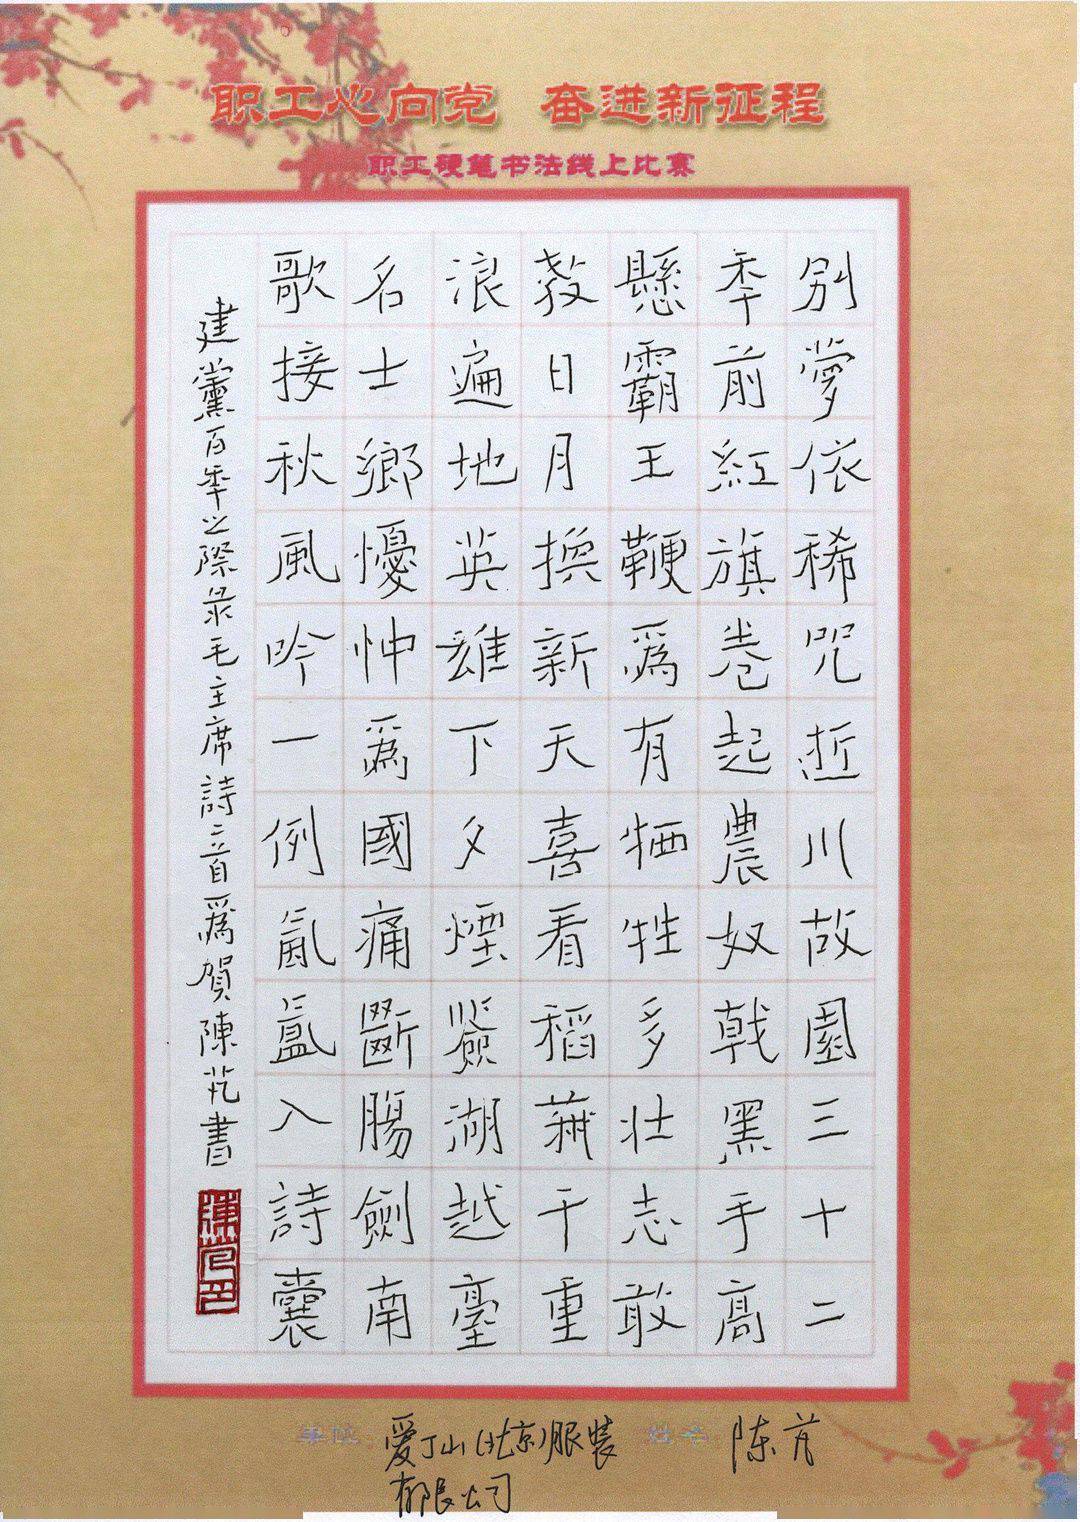 职工心向党 奋进新征程
职工硬笔书法线上比赛
别夢依稀咒逝川故園三十二
季前紅旗卷起農奴戟黑手高
懸霸王鞭為有牺牲多壮志敢
教日月換新天喜看稻菽千重
浪遍地英雄下夕煙鑒湖越臺
名士鄉憂忡為國痛斷腸劍南
歌接秋風吟一例氤氳入詩囊
建黨百年之際录毛主席詩二首為賀陳芃書
单位 爱丁山(北京)服装 姓名 陈芃
有限公司